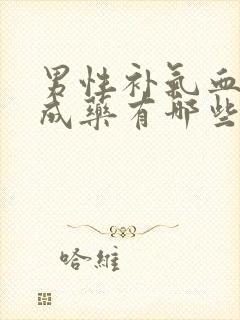 男性补氣血
成藥有哪些
哈維